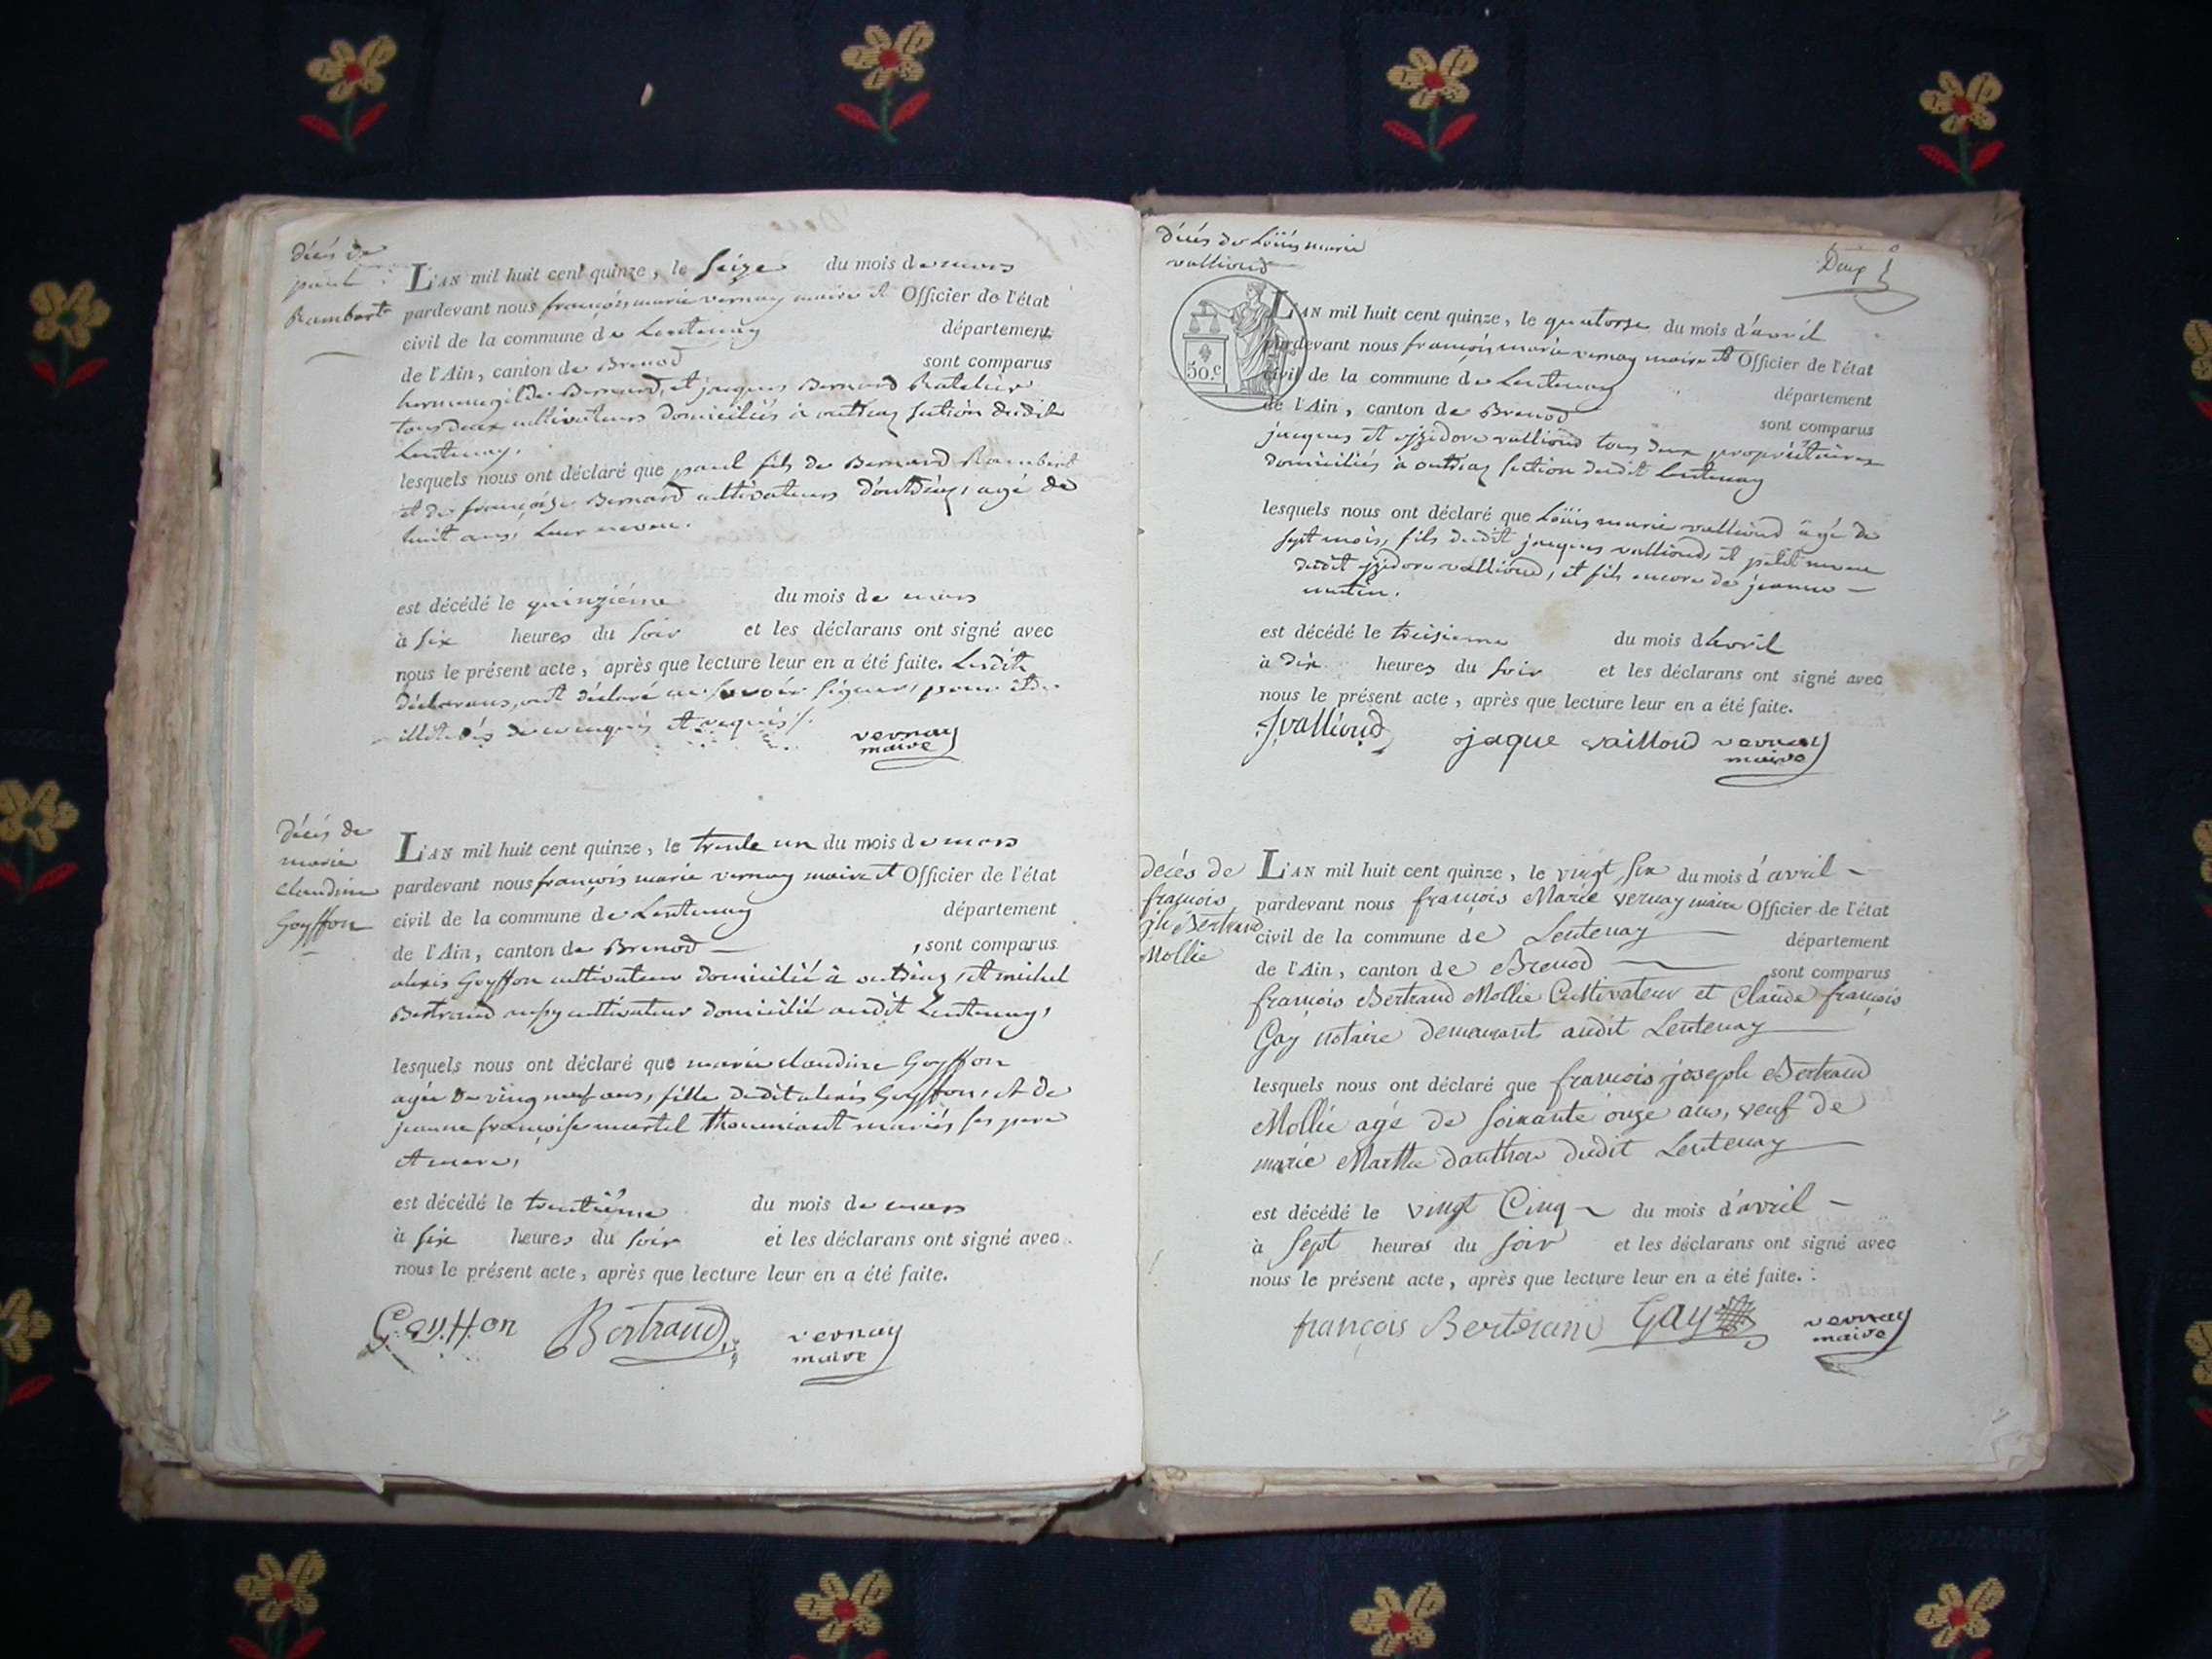 décès de
paul
Rambert
L'AN mil huit cent quinze, le seize du mois de mars
pardevant nous françois marie vernay maire et Officier de l'état
civil de la commune de Lentenay département
de l'Ain, canton de Brenod sont comparus
hermenegilde Bernard, et jacques Bernard Ratelier
tous deux cultivateurs domiciliés à outriaz section dudit
Lentenay,
lesquels nous ont déclaré que paul fils de Bernard Rambert
et de françoise Bernard cultivateurs d'outriaz, agé de
huit ans, leur neveu.
est décédé le quinzième du mois de mars
à six heures du soir et les déclarans ont signé avec
nous le présent acte, après que lecture leur en a été faite. Lesdits
déclarans, ont déclaré ne savoir signer, pour être
illitérés de ce enquis et requis /.
vernay
maire
décès de
marie
claudine
Goyffon
L'AN mil huit cent quinze, le trente un du mois de mars
pardevant nous françois marie vernay maire et Officier de l'état
civil de la commune de Lentenay département
de l'Ain, canton de Brenod , sont comparus
alexis Goyffon cultivateur domicilié à outriaz, et michel
Bertrand cultivateur domicilié audit Lentenay,
lesquels nous ont déclaré que marie claudine Goyffon
agée de ving neuf ans, fille dudit alexis Goyffon, et de
jeanne françoise martel mariés ses pere
et mere,
est décédé le trentième du mois de mars
à six heures du soir et les déclarans ont signé avec
nous le présent acte, après que lecture leur en a été faite.
Goyffon Bertrand vernay
maire
décès de Loüis marie
valliond
Deux
50.c
L'AN mil huit cent quinze, le quatorse du mois d'avril
pardevant nous françois marie vernay maire et Officier de l'état
civil de la commune de Lentenay département
de l'Ain, canton de Brenod sont comparus
jacques et yzidore valliond tous deux propriétaires
domiciliés à outriaz section dudit Lentenay
lesquels nous ont déclaré que Loüis marie valliond âgé de
sept mois, fils dudit jacques valliond, et petit neveu
dudit yzidore valliond, et fils encore de jeanne
est décédé le treisieme du mois d'avril
à dix heures du soir et les déclarans ont signé avec
nous le présent acte, après que lecture leur en a été faite.
jvalliond jaque vailloud vernay
maire
décès de
françois
jh Bertrand
Mollie
L'AN mil huit cent quinze, le vingt six du mois d'avril
pardevant nous françois Marie vernay maire Officier de l'état
civil de la commune de Lentenay département
de l'Ain, canton de Brenod sont comparus
françois Bertrand Mollie Cultivateur et Claude françois
Gay notaire demeurant audit Lentenay
lesquels nous ont déclaré que françois joseph Bertrand
Mollie agé de soixante onze ans, veuf de
marie Marthe dudit Lentenay
est décédé le vingt Cinq du mois d'avril
à sept heures du soir et les déclarans ont signé avec
nous le présent acte, après que lecture leur en a été faite.
françois Bertrand Gay vernay
maire